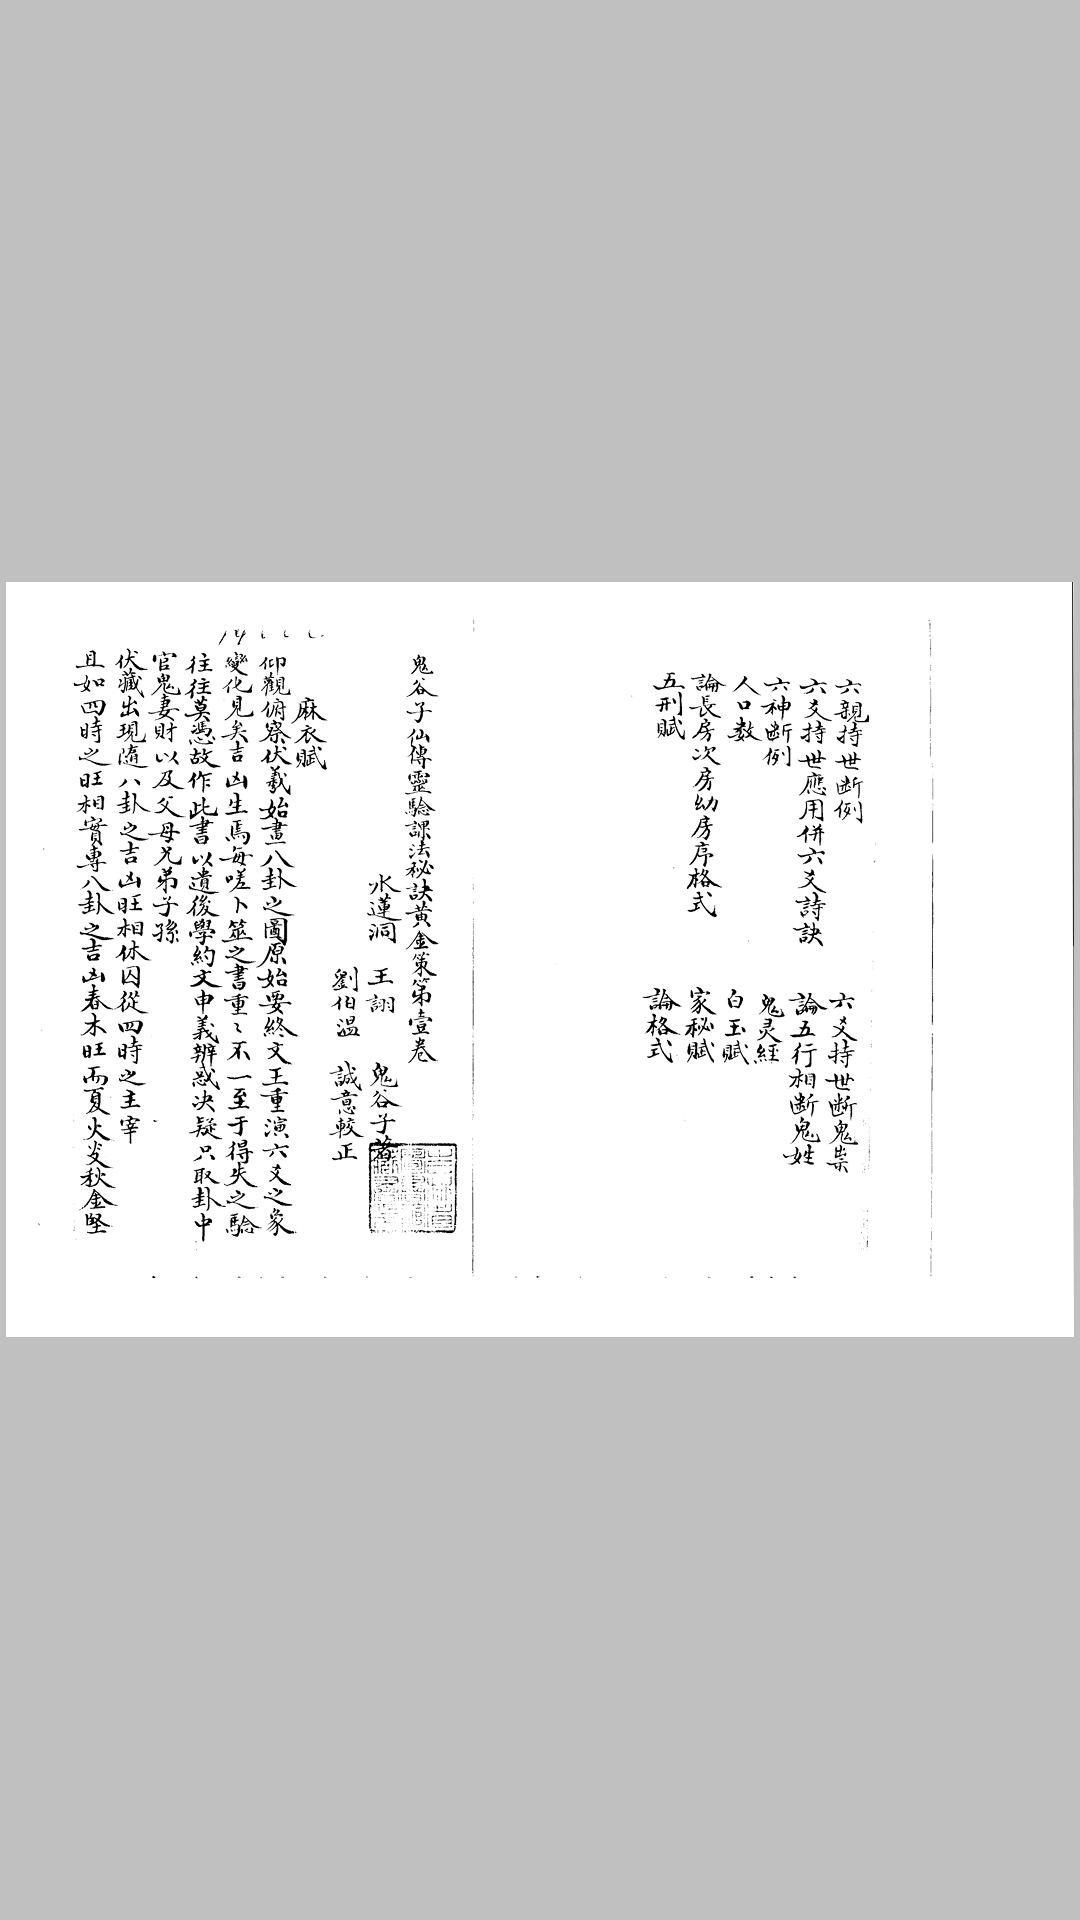 六親持世断例
六爻持世断鬼祟
六爻持世應用併六爻詩訣
論五行相断鬼姓
六神断例
鬼灵經
人口数
白玉賦
論長房次房幼房序格式
家秘賦
五刑賦
論格式
鬼谷子仙傳靈驗課法祕訣黃金策第壹卷
水蓮洞 王詡 鬼谷子著
劉伯温 誠意較正
麻衣賦
仰觀俯察伏羲始畫八卦之圖原始要終文王重演六爻之象
變化見矣吉凶生焉每嗟卜筮之書重〻不一至于得失之驗
往往莫憑故作此書以遺後學約文申義辨惑決疑只取卦中
官鬼妻財以及父母兄弟子孫
伏藏出現隨八卦之吉凶旺相休囚從四時之主宰
且如四時之旺相實專八卦之吉凶春木旺而夏火炎秋金堅